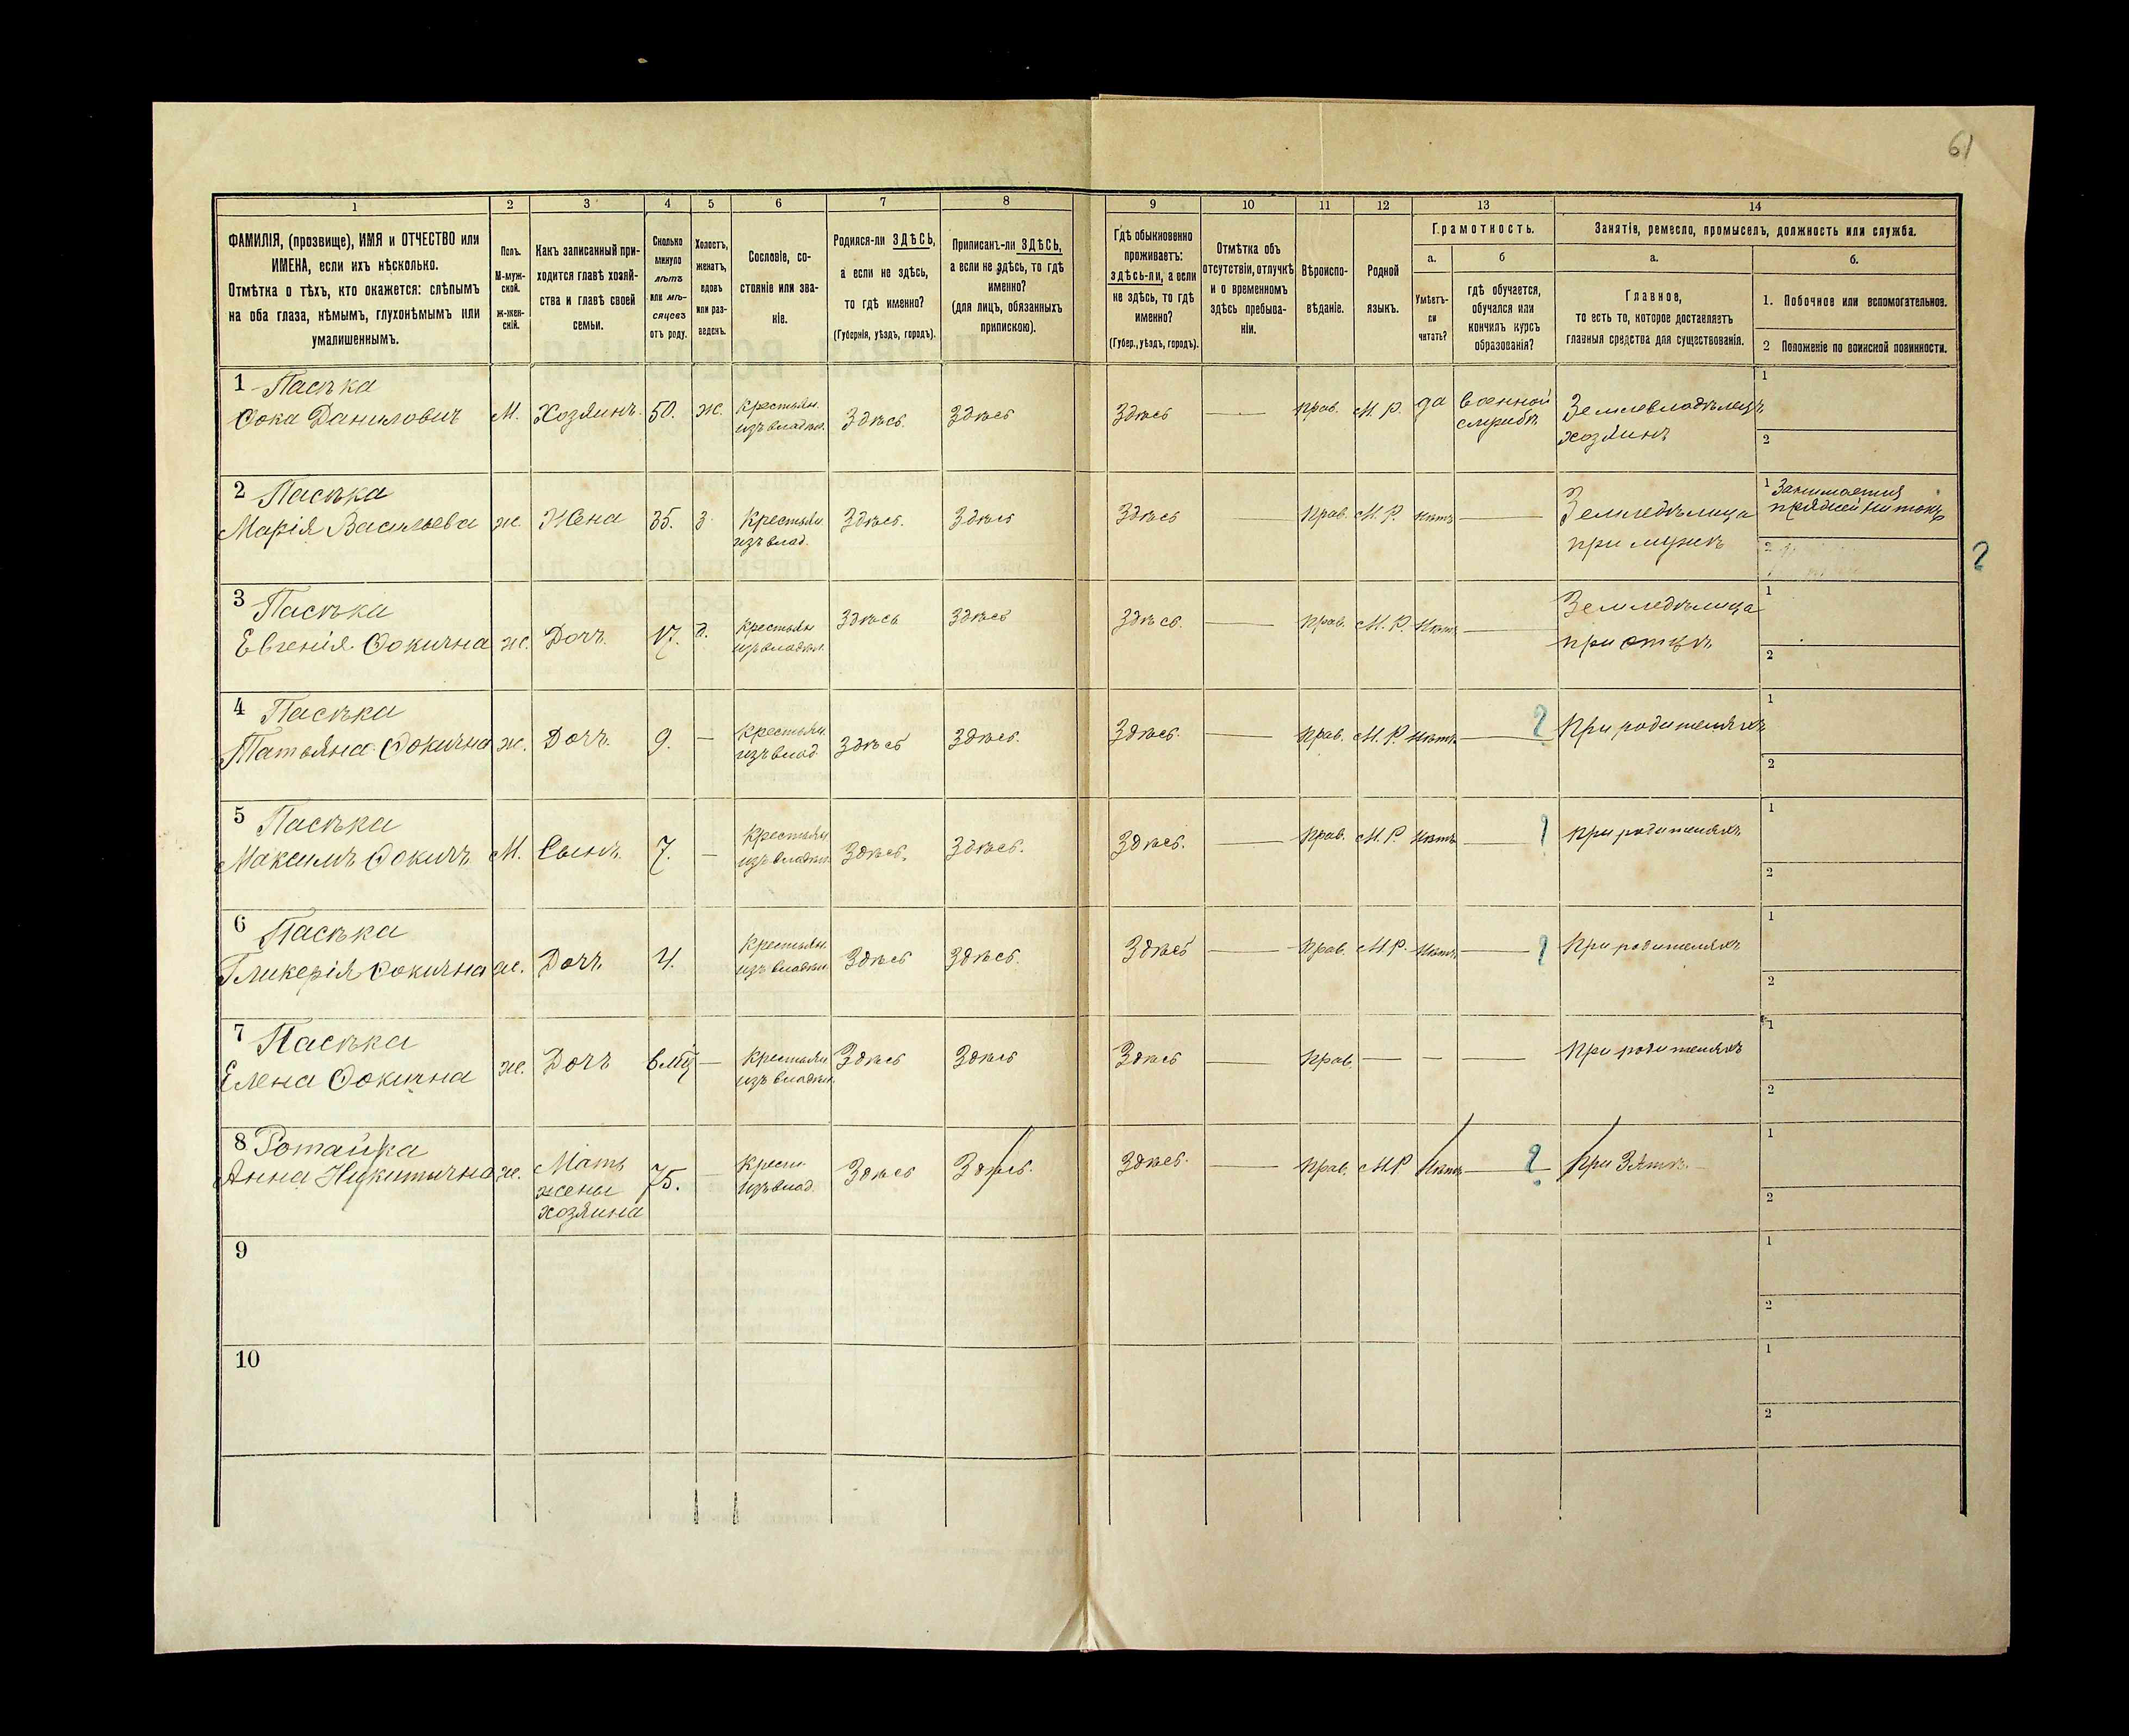 61
1
2
3
4
5
6
7
8
9
10
11
12
13
14
ФАМИЛІЯ, (прозвище), ИМЯ и ОТЧЕСТВО или
ИМЕНА, если ихъ нѣсколько.
Отмѣтка о тѣхъ, кто окажется: слѣпымъ
на оба глаза, нѣмымъ, глухонѣмымъ или
умалишеннымъ.
Полъ.
М-муж-
ской.
ж-жен-
скій.
Какъ записанный при-
ходится главѣ хозяй-
ства и главѣ своей
семьи.
Сколько
минуло
лѣтъ
или мѣ-
сяцевъ
отъ роду.
Холостъ,
женатъ,
вдовъ
или раз-
веденъ.
Сословіе, со-
стояніе или зва-
ніе.
Родился-ли ЗДѢСЬ,
а если не здѣсь,
то гдѣ именно?
(Губернія, уѣздъ, городъ).
Приписанъ-ли ЗДѢСЬ,
а если не здѣсь, то гдѣ
именно?
(для лицъ, обязанныхъ
припискою).
Гдѣ обыкновенно
проживаетъ:
здѣсь-ли, а если
не здѣсь, то гдѣ
именно?
(Губер., уѣздъ, городъ).
Отмѣтка объ
отсутствіи, отлучкѣ
и о временномъ
здѣсь пребыва-
ніи.
Вѣроиспо-
вѣданіе.
Родной
языкъ.
Грамотность.
а.
Умѣетъ-
ли
читать?
б
гдѣ обучается,
обучался или
кончилъ курсъ
образованія?
Занятіе, ремесло, промыселъ, должность или служба.
а.
Главное,
то есть то, которое доставляетъ
главныя средства для существованія.
б.
1. Побочное или вспомогательное.
2 Положеніе по воинской повинности.
1 Пасѣка
Ѳока Даниловичъ М. Хозяинъ. 50. ж. Крестьян. Здѣсь. Здѣсь Здѣсь — прав. М. Р. да военной Землевладѣлецъ 1
изъ владѣл. службѣ хозяинъ 2
2 Пасѣка
Марія Васильева ж. Жена 35. з Крестьян Здѣсь. Здѣсь Здѣсь — прав. М. Р. нѣтъ — Земледѣлица 1 Занимается
изъ влад. при мужѣ пряжей нитокъ
2
?
3 Пасѣка
Евгенія Ѳокична ж. Дочь. 17. д. Крестьян Здѣсь Здѣсь Здѣсь. — прав. М. Р. нѣтъ — Земледѣлица 1
изъ владѣл. при отцѣ 2
4 Пасѣка
Татьяна Ѳокична ж. Дочь. 9. — Крестьян. Здѣсь Здѣсь. Здѣсь. — прав. М. Р. нѣтъ — ? При родителяхъ 1
изъ влад. 2
5 Пасѣка
Максимъ Ѳокичъ М. Сынъ. 7. — Крестьян Здѣсь. Здѣсь. Здѣсь. — прав. М. Р. нѣтъ — ? при родителяхъ 1
изъ владѣл. 2
6 Пасѣка
Гликерія Ѳокична ж. Дочь. 4. Крестьян. Здѣсь Здѣсь. Здѣсь — прав. М. Р. нѣтъ — ? При родителяхъ 1
изъ владѣл. 2
7 Пасѣка
Елена Ѳокична ж. Дочь — Крестьян Здѣсь Здѣсь Здѣсь — прав. — — — При родителяхъ 1
изъ владѣл. 2
8
Анна Никитична ж. Мать 75. — Крест. Здѣсь Здѣсь. Здѣсь. — прав. М Р нѣтъ — ? При Зятѣ — 1
жены изъ влад. 2
хозяина
9 1
2
10 1
2